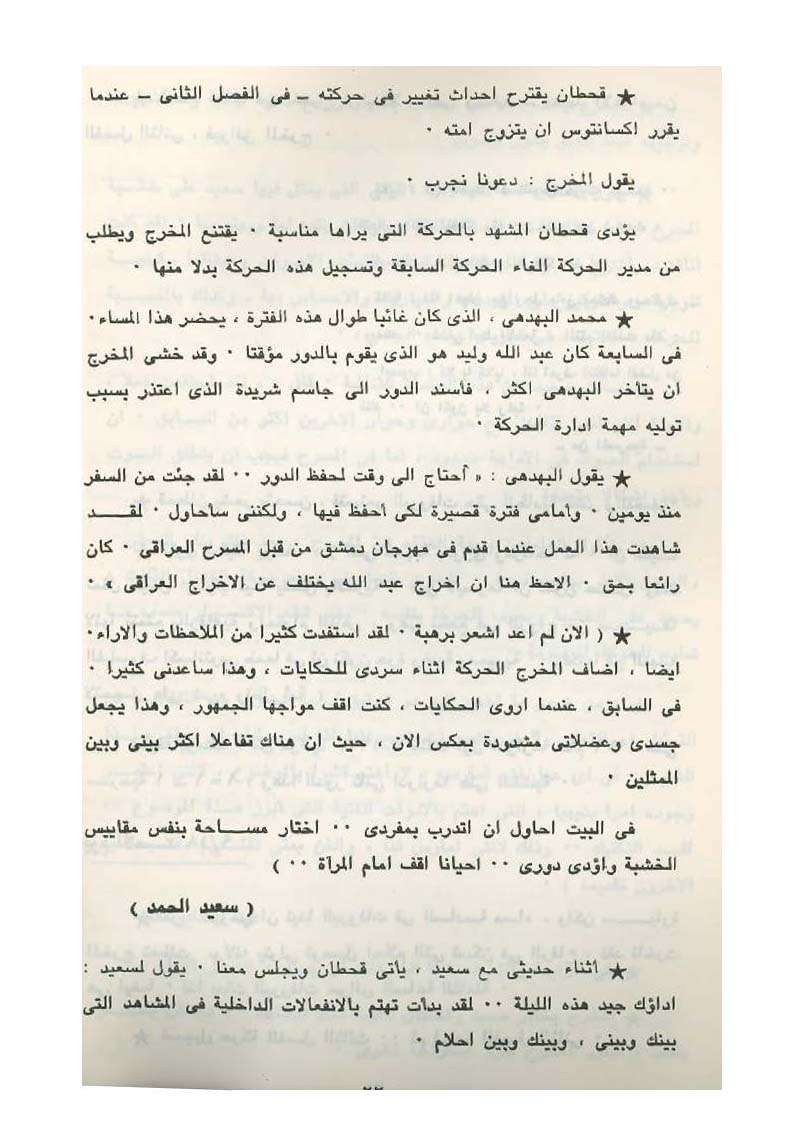 ★ قحطان يقترح احداث تغيير فى حركته ـ فى الفصل الثانى ـ عندما
يقرر اكسانتوس ان يتزوج امته ٠
يقول المخرج : دعونا نجرب ٠
يؤدى قحطان المشهد بالحركة التى يراها مناسبة ٠ يقتنع المخرج ويطلب
من مدير الحركة الغاء الحركة السابقة وتسجيل هذه الحركة بدلا منها ٠
★ محمد البهدهى ، الذى كان غائبا طوال هذه الفترة ، يحضر هذا المساء٠
فى السابعة كان عبد الله وليد هو الذى يقوم بالدور مؤقتا ٠ وقد خشى المخرج
ان يتأخر البهدهى اكثر ، فأسند الدور الى جاسم شريدة الذى اعتذر بسبب
توليه مهمة ادارة الحركة ٠
★ يقول البهدهى : « أحتاج الى وقت لحفظ الدور ٠٠ لقد جئت من السفر
منذ يومين ٠ وأمامى فترة قصيرة لكى أحفظ فيها ، ولكننى سأحاول ٠ لقـــد
شاهدت هذا العمل عندما قدم فى مهرجان دمشق من قبل المسرح العراقى ٠ كان
رائعا بحق ٠ الاحظ هنا ان اخراج عبد الله يختلف عن الاخراج العراقى » ٠
★ ( الان لم اعد اشعر برهبة ٠ لقد استفدت كثيرا من الملاحظات والاراء٠
ايضا ، اضاف المخرج الحركة اثناء سردى للحكايات ، وهذا ساعدنى كثيرا ٠
فى السابق ، عندما اروى الحكايات ، كنت اقف مواجها الجمهور ، وهذا يجعل
جسدى وعضلاتى مشدودة بعكس الان ، حيث ان هناك تفاعلا اكثر بينى وبين
الممثلين ٠
فى البيت احاول ان اتدرب بمفردى ٠٠ اختار مســـاحة بنفس مقاييس
الخشبة واؤدى دورى ٠٠ احيانا اقف امام المرآة ٠٠ )
( سعيد الحمد )
★ أثناء حديثى مع سعيد ، يأتى قحطان ويجلس معنا ٠ يقول لسعيد :
اداؤك جيد هذه الليلة ٠٠ لقد بدأت تهتم بالانفعالات الداخلية فى المشاهد التى
بينك وبينى ، وبينك وبين احلام ٠